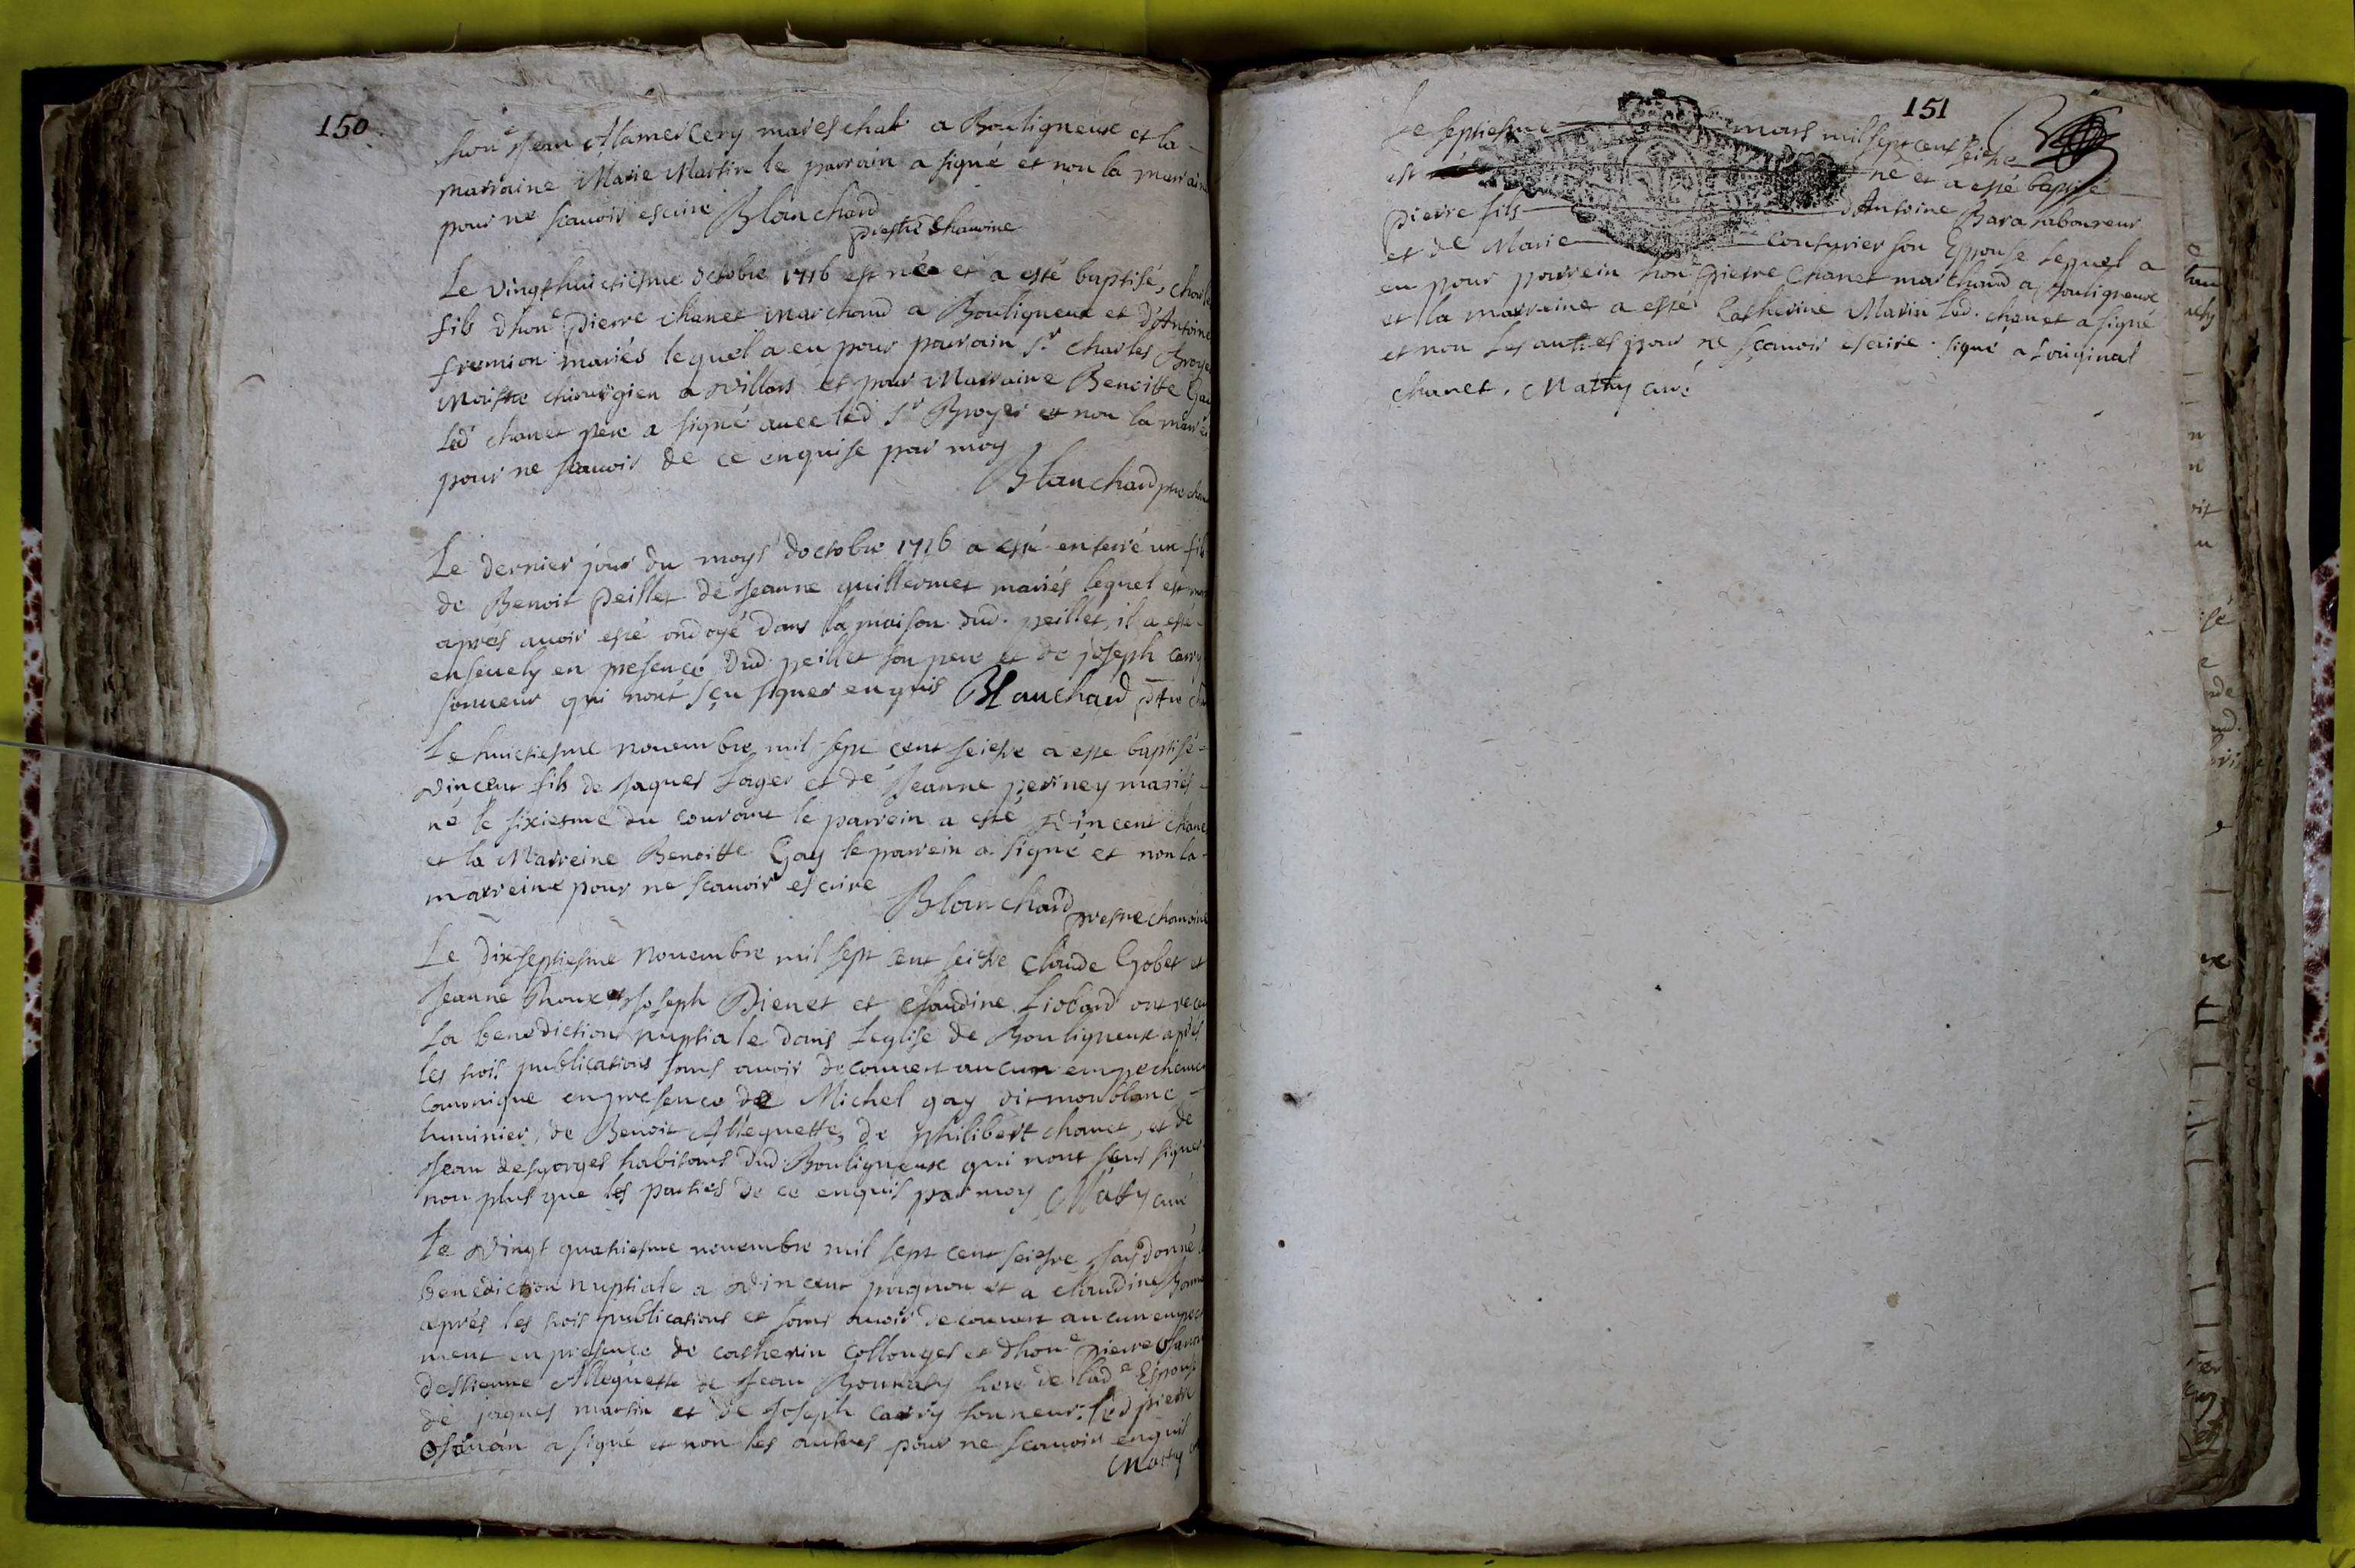 150
hon^e Jean Alamercery mareschal a Bouligneux et la
marraine Marie Martin le parrain a signé et non la marraine
pour ne scauoir escrire Blanchard
prestre Chanoine
Le vingthuictiesme octobre 1716 est née et a esté baptisé, charle
fils dhon^e pierre chanet marchand a Bouligneux et d'Antoine
fremion mariés lequel a eu pour parrain s^r charles Broye
Maistre chirurgien a villars et pour Marraine Benoitte Ga
led chanet pere a signé auec led s^r Broyer et non la marei
pour ne scauoir de ce enquise par moy
Blanchard pre chan
Le dernier jour du moys doctobre 1716 a esté enterré un fils
de Benoit peillet de Jeanne guillermet mariés lequel est mort
aprés auoir esté ondoyé dans la maison dud. peillet, il a esté
enseuely en presence dud. peillet son pere et de joseph carry
sonneur qui nont sçu signer enquis Blanchard ptre ch
Le huictiesme nouembre mil sept cent seiesze a este baptisé
vincent fils de Jaques Loger et de Jeanne periney mariés
né le sixiesme du courant le parrein a esté vincent chane
et la Marreine Benoitte Gay le parrein a signé et non la
marreine pour ne scauoir escrire
Blanchard prestre chanoine
Le dixseptiesme nouembre mil sept cent seiesze Claude Gobet et
Jeanne Thoux et Joseph Dienet et claudine Liobard ont receu
La benediction nuptiale dans Leglise de Bouligneux aprés
les trois publications sans auoir decouuert aucun empechemen
canonique en presence de Michel gay dit monblanc
luminier, de Benoit Alleguette, de philibert chanet, et de
Jean desgorges habitans dud. Bouligneux qui nont sceu signer
non plus que les parties de ce enquis par moy Matty curé
Le vingt quatriesme nouembre mil sept cent seiesze jay donné
benediction nuptiale a vincent pagnon et a claudine Bonn
aprés les trois publications et sans auoir decouuert aucun empec
ment en presence de catherin collonges et dhon^e pierre
destienne Alleguette de Jean frere de lad^e Espouse
de jaques martin et de Joseph carry sonneur. led pierre
a signé et non les autres pour ne scauoir enquis
Matty
151
Le septiesme mars mil sept cent seiesze
est né et a esté baptisé
pierre fils d'Antoine Bara laboureur
et de Marie couturier son Espouse Lequel a
eu pour parrein hon^e pierre Chanet marchand a Bouligneux
et la marraine a esté Catherine Marin Led. chanet a signé
et non Les autres pour ne sçauoir escrire. signé a Loriginal
chanet. Matty curé